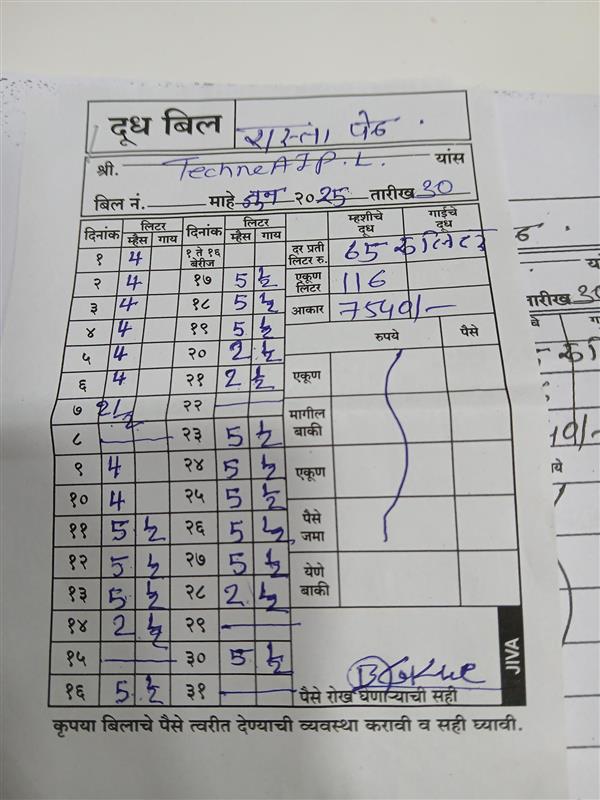 दूध बिल रास्ता पेठ .
श्री. Techne AIP.L. यांस
बिल नं. माहे जुन २०25 तारीख 30
दिनांक लिटर म्हैस गाय दिनांक लिटर म्हैस गाय म्हशीचे दूध गाईचे दूध
१ 4 १ ते १६ बेरीज दर प्रती लिटर रु. 65 रु लिटर
२ 4 १७ 5 ½ एकूण लिटर 116
३ 4 १८ 5 ½ आकार 7540/-
४ 4 १९ 5 ½ रुपये पैसे
५ 4 २० 2 ½
६ 4 २१ 2 ½ एकूण
७ 2½ २२ —
८ — २३ 5 ½ मागील बाकी
९ 4 २४ 5 ½ एकूण
१० 4 २५ 5 ½
११ 5 ½ २६ 5 ½ पैसे जमा
१२ 5 ½ २७ 5 ½ येणे बाकी
१३ 5 ½ २८ 2 ½
१४ 2 ½ २९ —
१५ — ३० 5 ½
१६ 5 ½ ३१ — पैसे रोख घेणाऱ्याची सही
JIVA
कृपया बिलाचे पैसे त्वरीत देण्याची व्यवस्था करावी व सही घ्यावी.
तारीख 30